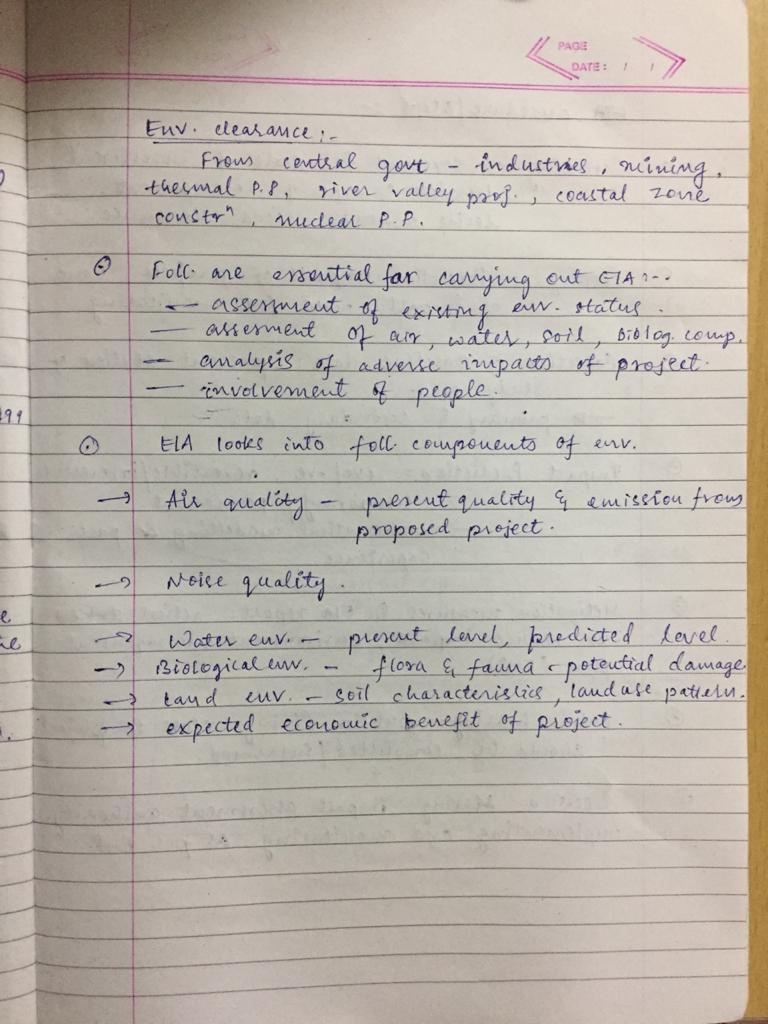 PAGE
DATE: / /
Env. clearance :-
From central govt - industries, mining,
thermal P.P, river valley proj., coastal zone
constrⁿ, nuclear P.P.
⊙ Foll. are essential for carrying out EIA :--
— assessment of existing env. status.
— assesment of air, water, soil, biolog. comp.
— analysis of adverse impacts of project.
— involvement of people.
99
⊙ EIA looks into foll. components of env.
→ Air quality - present quality & emission from
proposed project.
→ Noise quality.
→ Water env. - present level, predicted level.
→ Biological env. - flora & fauna - potential damage
→ Land env. - soil characteristics, landuse pattern.
→ expected economic benefit of project.